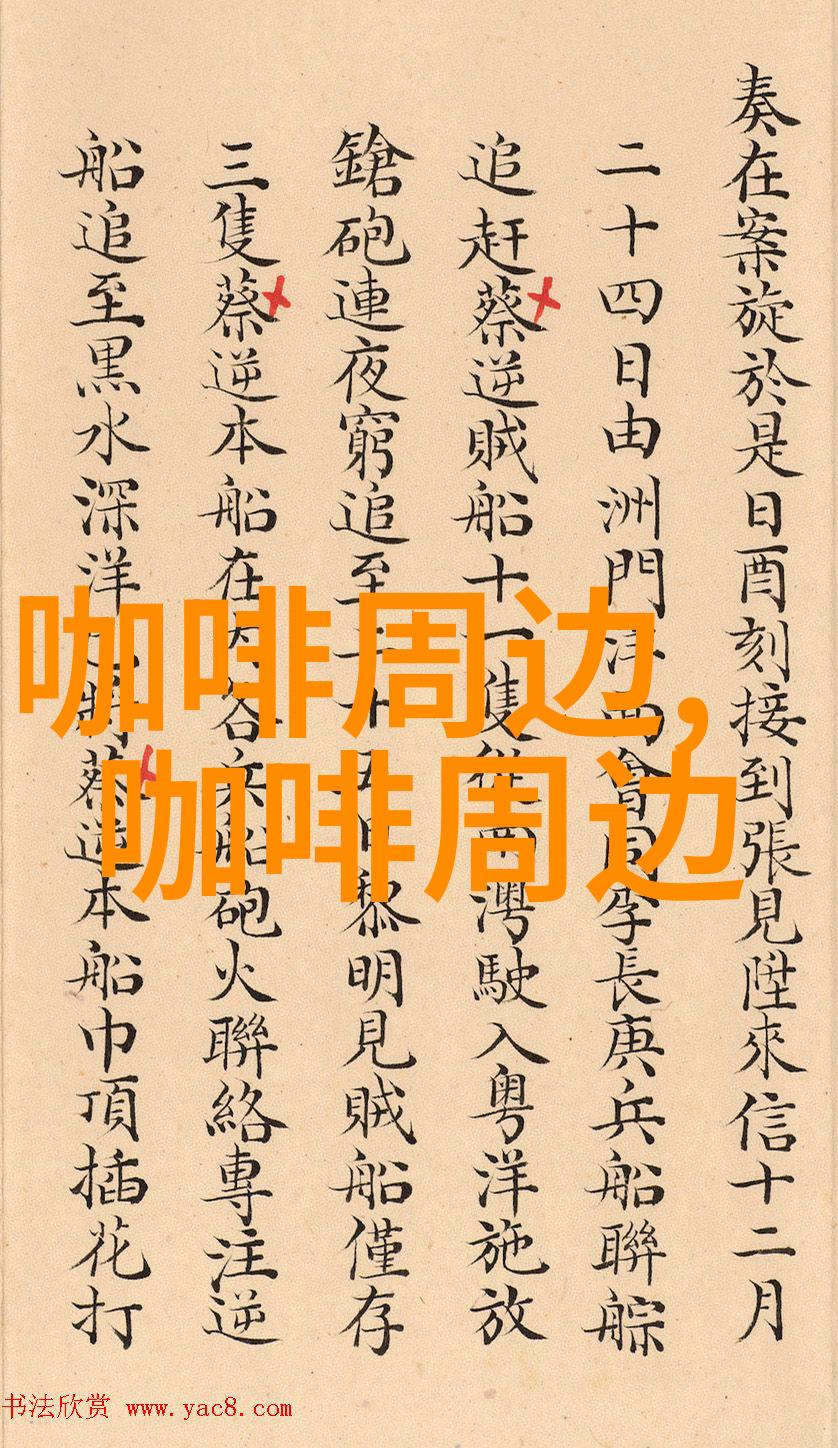 奏在案旋於是日酉刻接到張見陞來信十二月
二十四日由洲門洋面會同李長庚兵船聯䑸
追赶蔡逆賊船十一隻從灣駛入粤洋施放
鎗砲連夜窮追至二十五日黎明見賊船僅存
三隻蔡逆本船在內各兵船砲火聯絡專注逆
船追至黒水深洋將蔡逆本船巾頂插花打
咖啡周边,
咖啡周边
书法欣赏 www.yac8.com